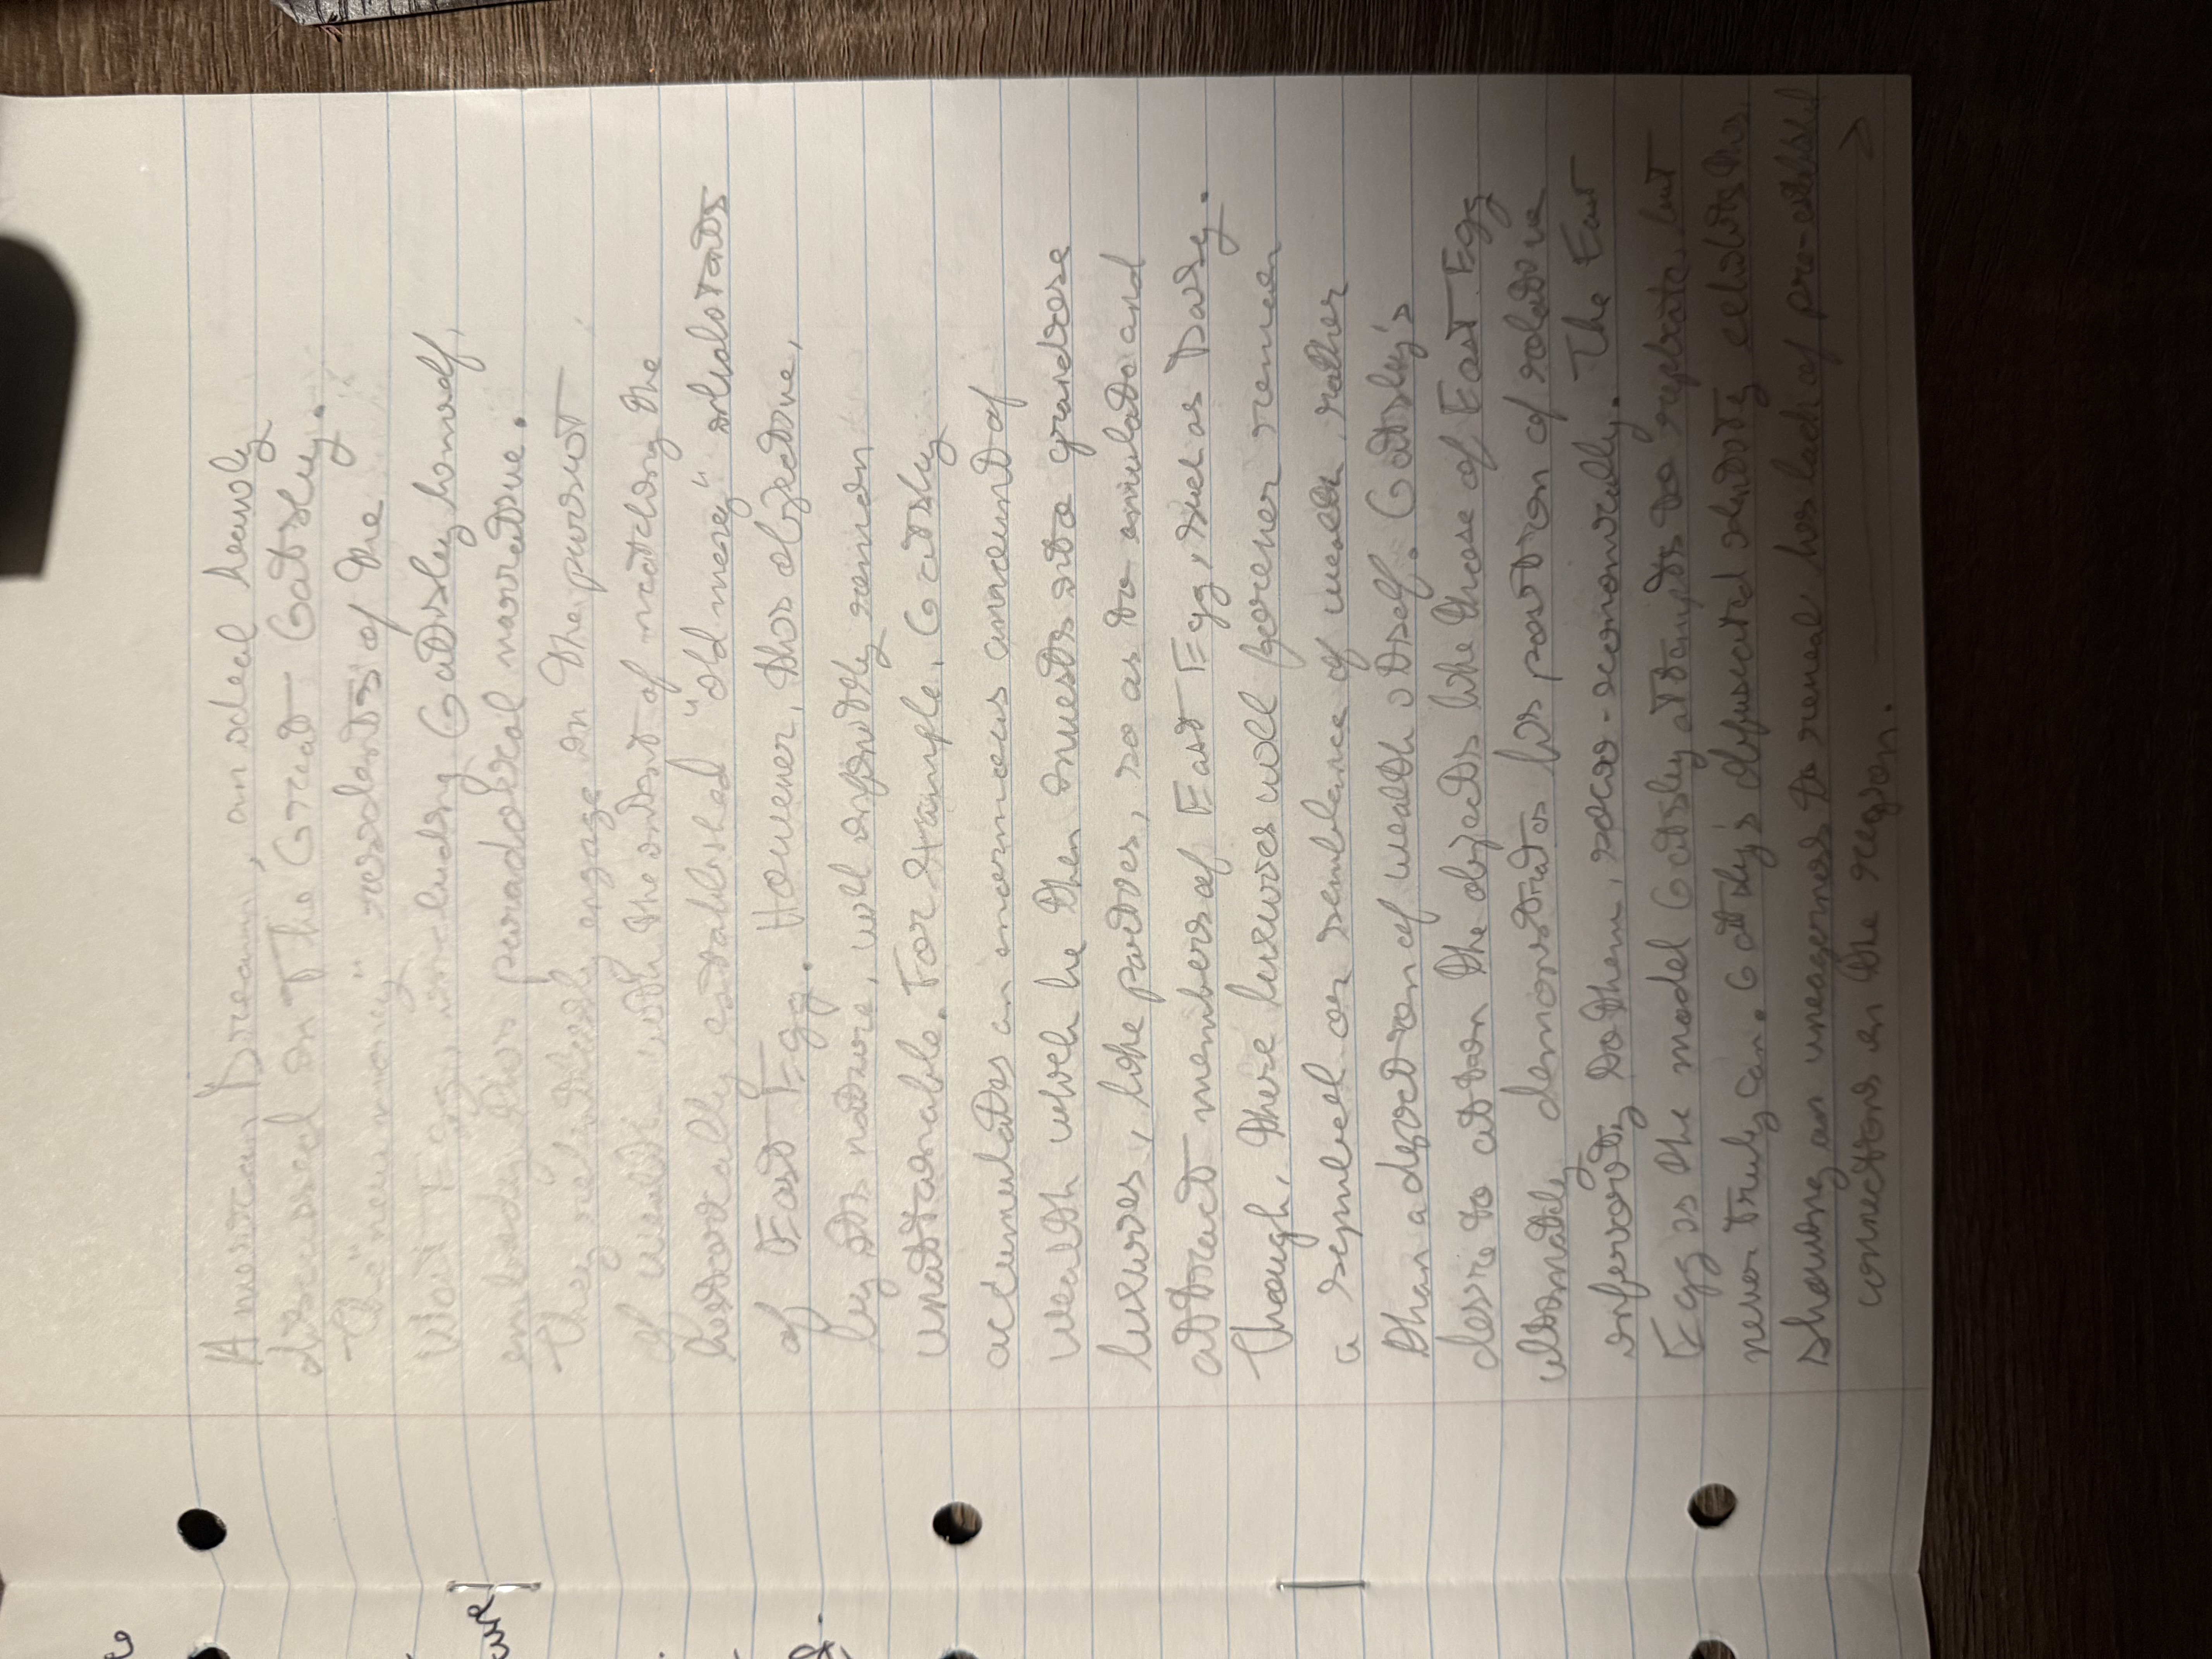 American Dream, an ideal heavily
discussed in The Great Gatsby.
The "new money" residents of the
West Egg, including Gatsby himself,
embody this paradoxical narrative.
They relentlessly engage in the pursuit
of wealth with the intent of matching the
historically established "old money" inhabitants
of East Egg. However, this objective,
by its nature, will infinitely remain
unattainable. For example, Gatsby
accumulates an enormous amount of
wealth which he then invests into grandiose
luxuries, like parties, so as to emulate and
attract members of East Egg, such as Daisy.
Though, these luxuries will forever remain
a symbol or semblance of wealth, rather
than a depiction of wealth itself. Gatsby's
desire to attain the objects like those of East Egg
ultimately demonstrates his position of relative
inferiority to them, socio-economically. The East
Egg is the model Gatsby attempts to replicate, but
never truly can. Gatsby's identity
showing an uneagerness to reveal his lack of pre-established
connections in the region.
ure